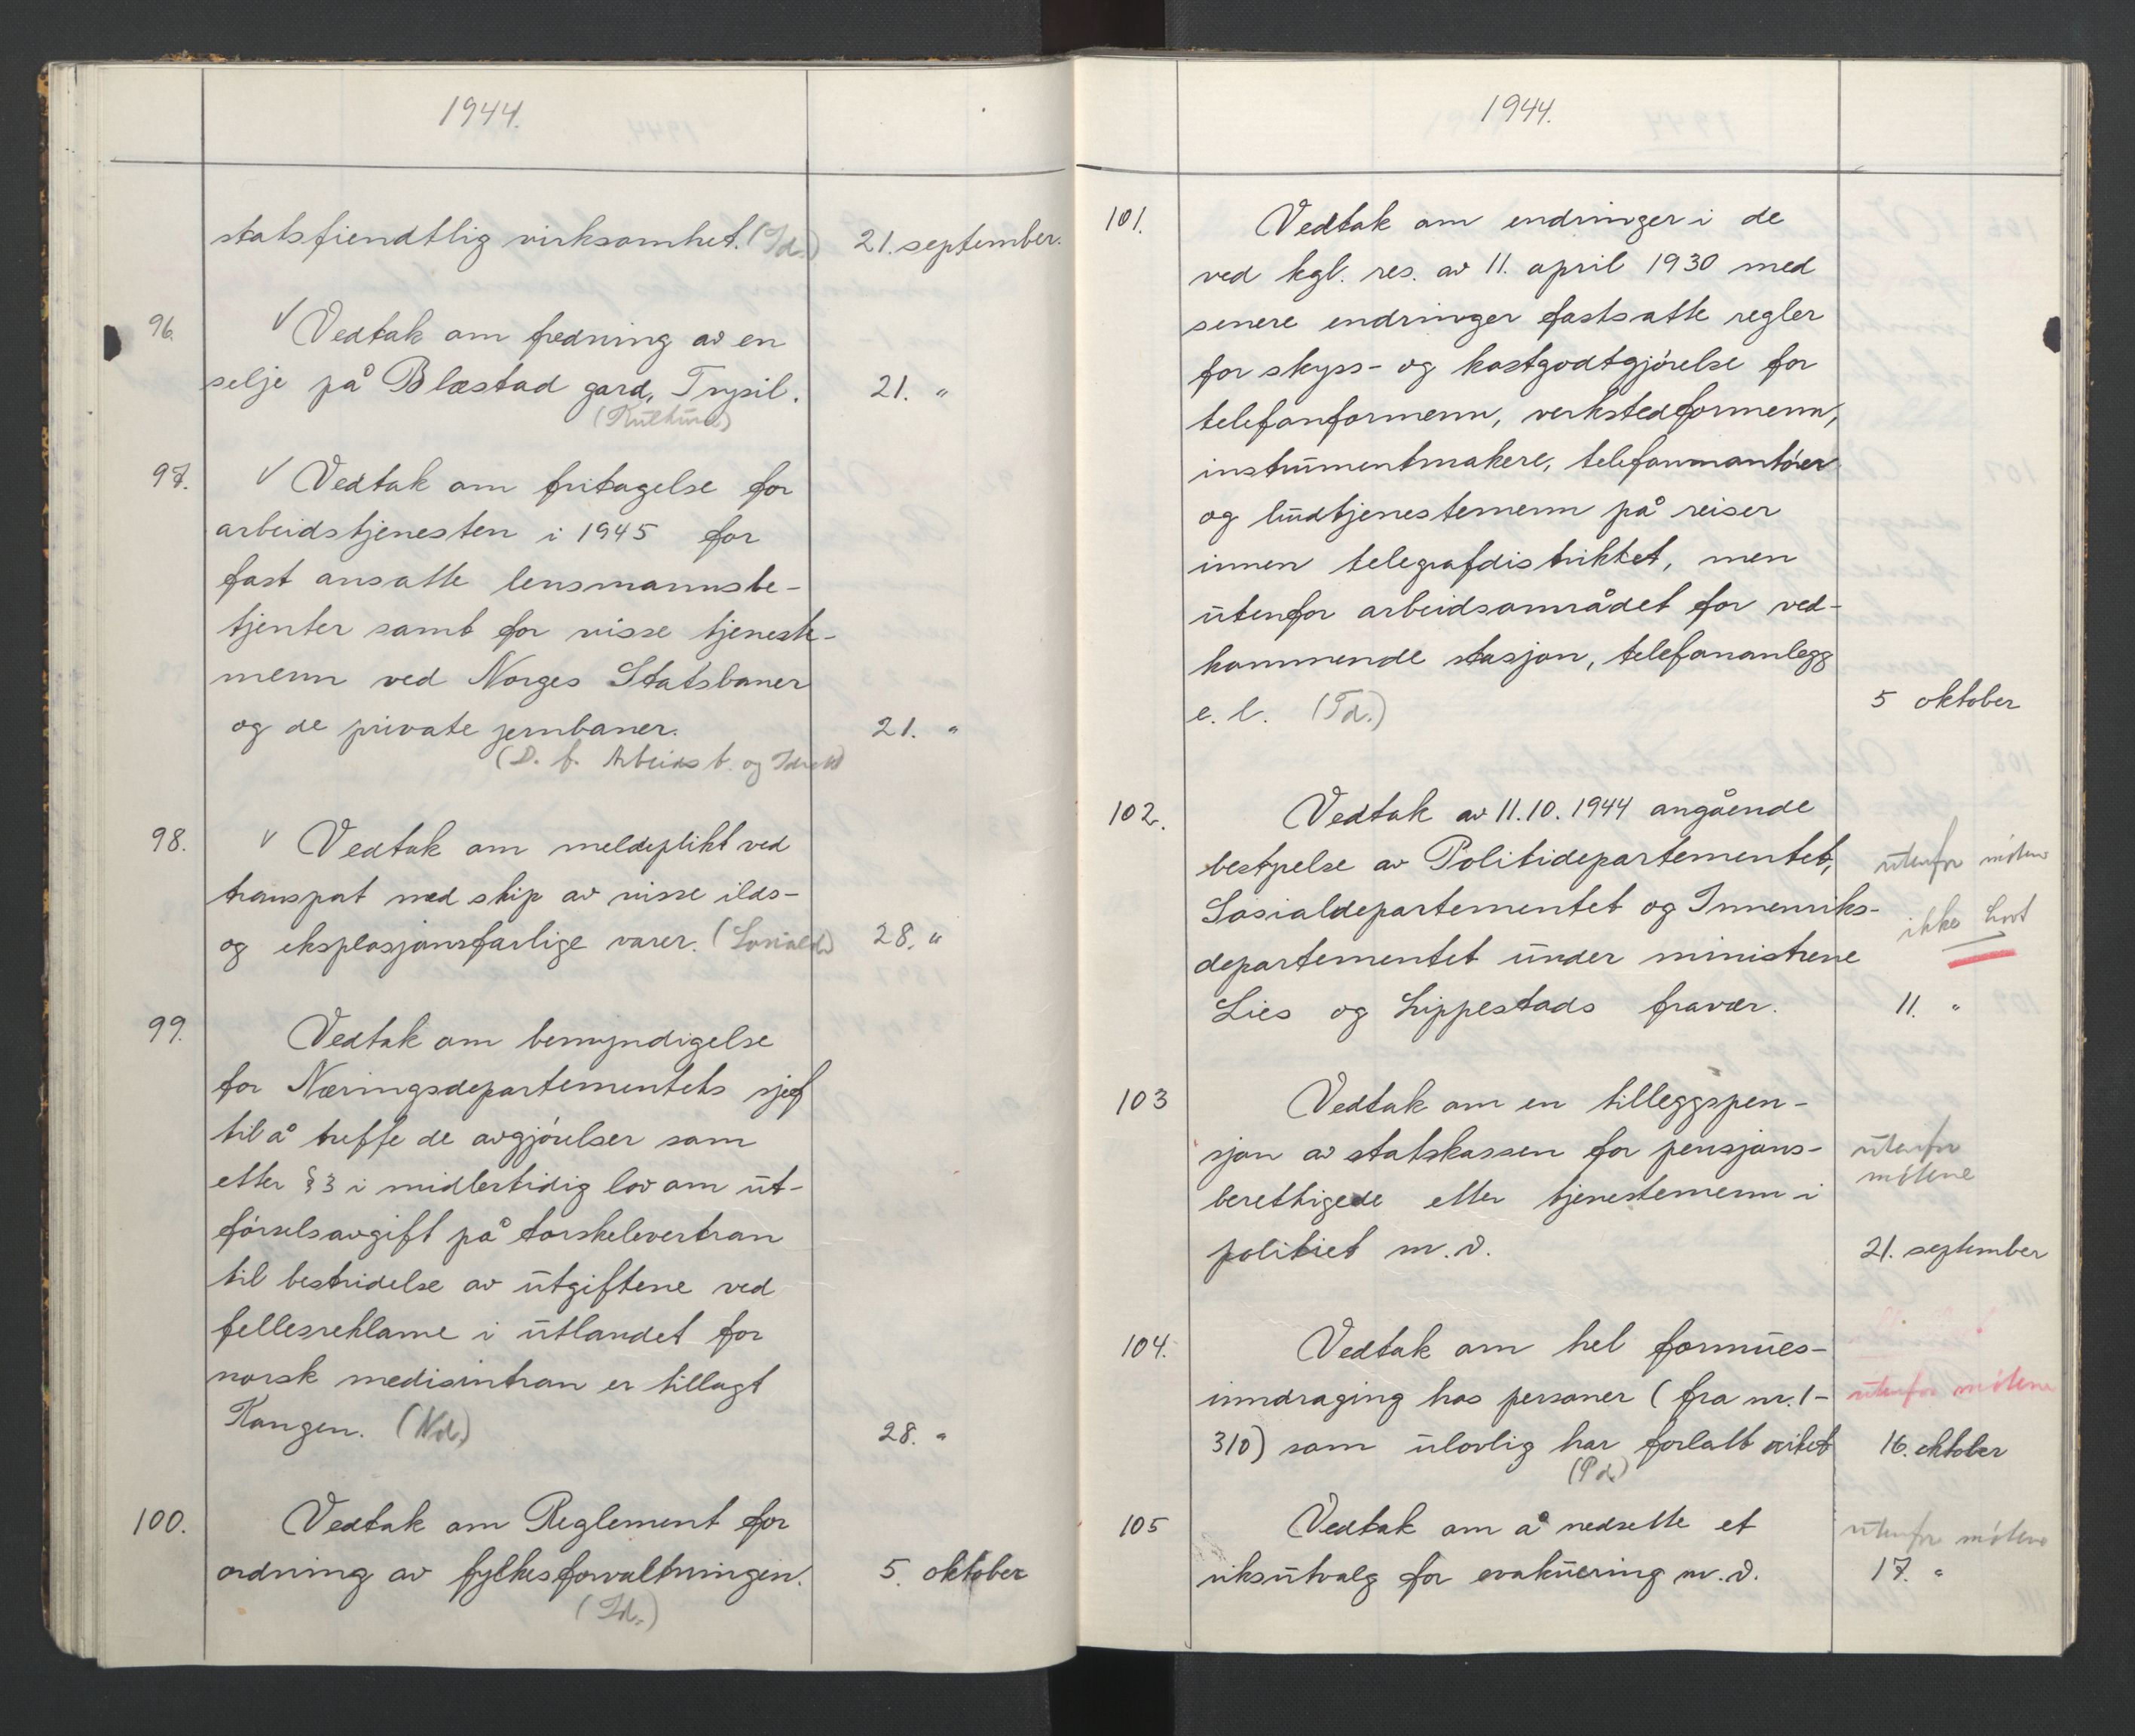 1944.
statsfiendtlig virksomhet. (Id.) 21. september.
96. √ Vedtak om fredning av en
selje på Blæstad gard, Trysil. 21. "
(Kulturd.)
97. √ Vedtak om fritagelse for
arbeidstjenesten i 1945 for
fast ansatte lensmannsbe-
tjenter samt for visse tjeneste-
menn ved Norges Statsbaner
og de private jernbaner. 21. "
(D. f. Arbeidst. og Idrett)
98. √ Vedtak om meldeplikt ved
transport med skip av visse ilds-
og eksplosjonsfarlige varer. (Sosiald.) 28. "
99. Vedtak om bemyndigelse
for Næringsdepartementets sjef
til å treffe de avgjørelser som
etter § 3 i midlertidig lov om ut-
førselsavgift på torskelevertran
til bestridelse av utgiftene ved
fellesreklame i utlandet for
norsk medisintran er tillagt
Kongen. (Nd.) 28. "
100. Vedtak om Reglement for
ordning av fylkesforvaltningen. 5. oktober
(Id.)
1944.
101. Vedtak om endringer i de
ved kgl. res. av 11. april 1930 med
senere endringer fastsatte regler
for skyss- og kostgodtgjørelse for
telefonformenn, verkstedformenn,
instrumentmakere, telefonmontører
og budtjenestemenn på reiser
innen telegrafdistriktet, men
utenfor arbeidsområdet for ved-
kommende stasjon, telefonanlegg
e. l. (Td.) 5 oktober
102. Vedtak av 11.10.1944 angående
bestyrelse av Politidepartementet, utenfor møtene
Sosialdepartementet og Innenriks- ikke lovt
departementet under ministrene
Lies og Lippestads fravær. 11. "
103 Vedtak om en tilleggspen-
sjon av statskassen for pensjons- utenfor
møtene
berettigede etter tjenestemenn i
politiet m.v. 21. september
104. Vedtak om hel formues-
inndraging hos personer (fra nr. 1- utenfor møtene
310) som ulovlig har forlatt riket 16. oktober
(Pd.)
105 Vedtak om å nedsette et utenfor møtene
riksutvalg for evakuering m.v. 17. "